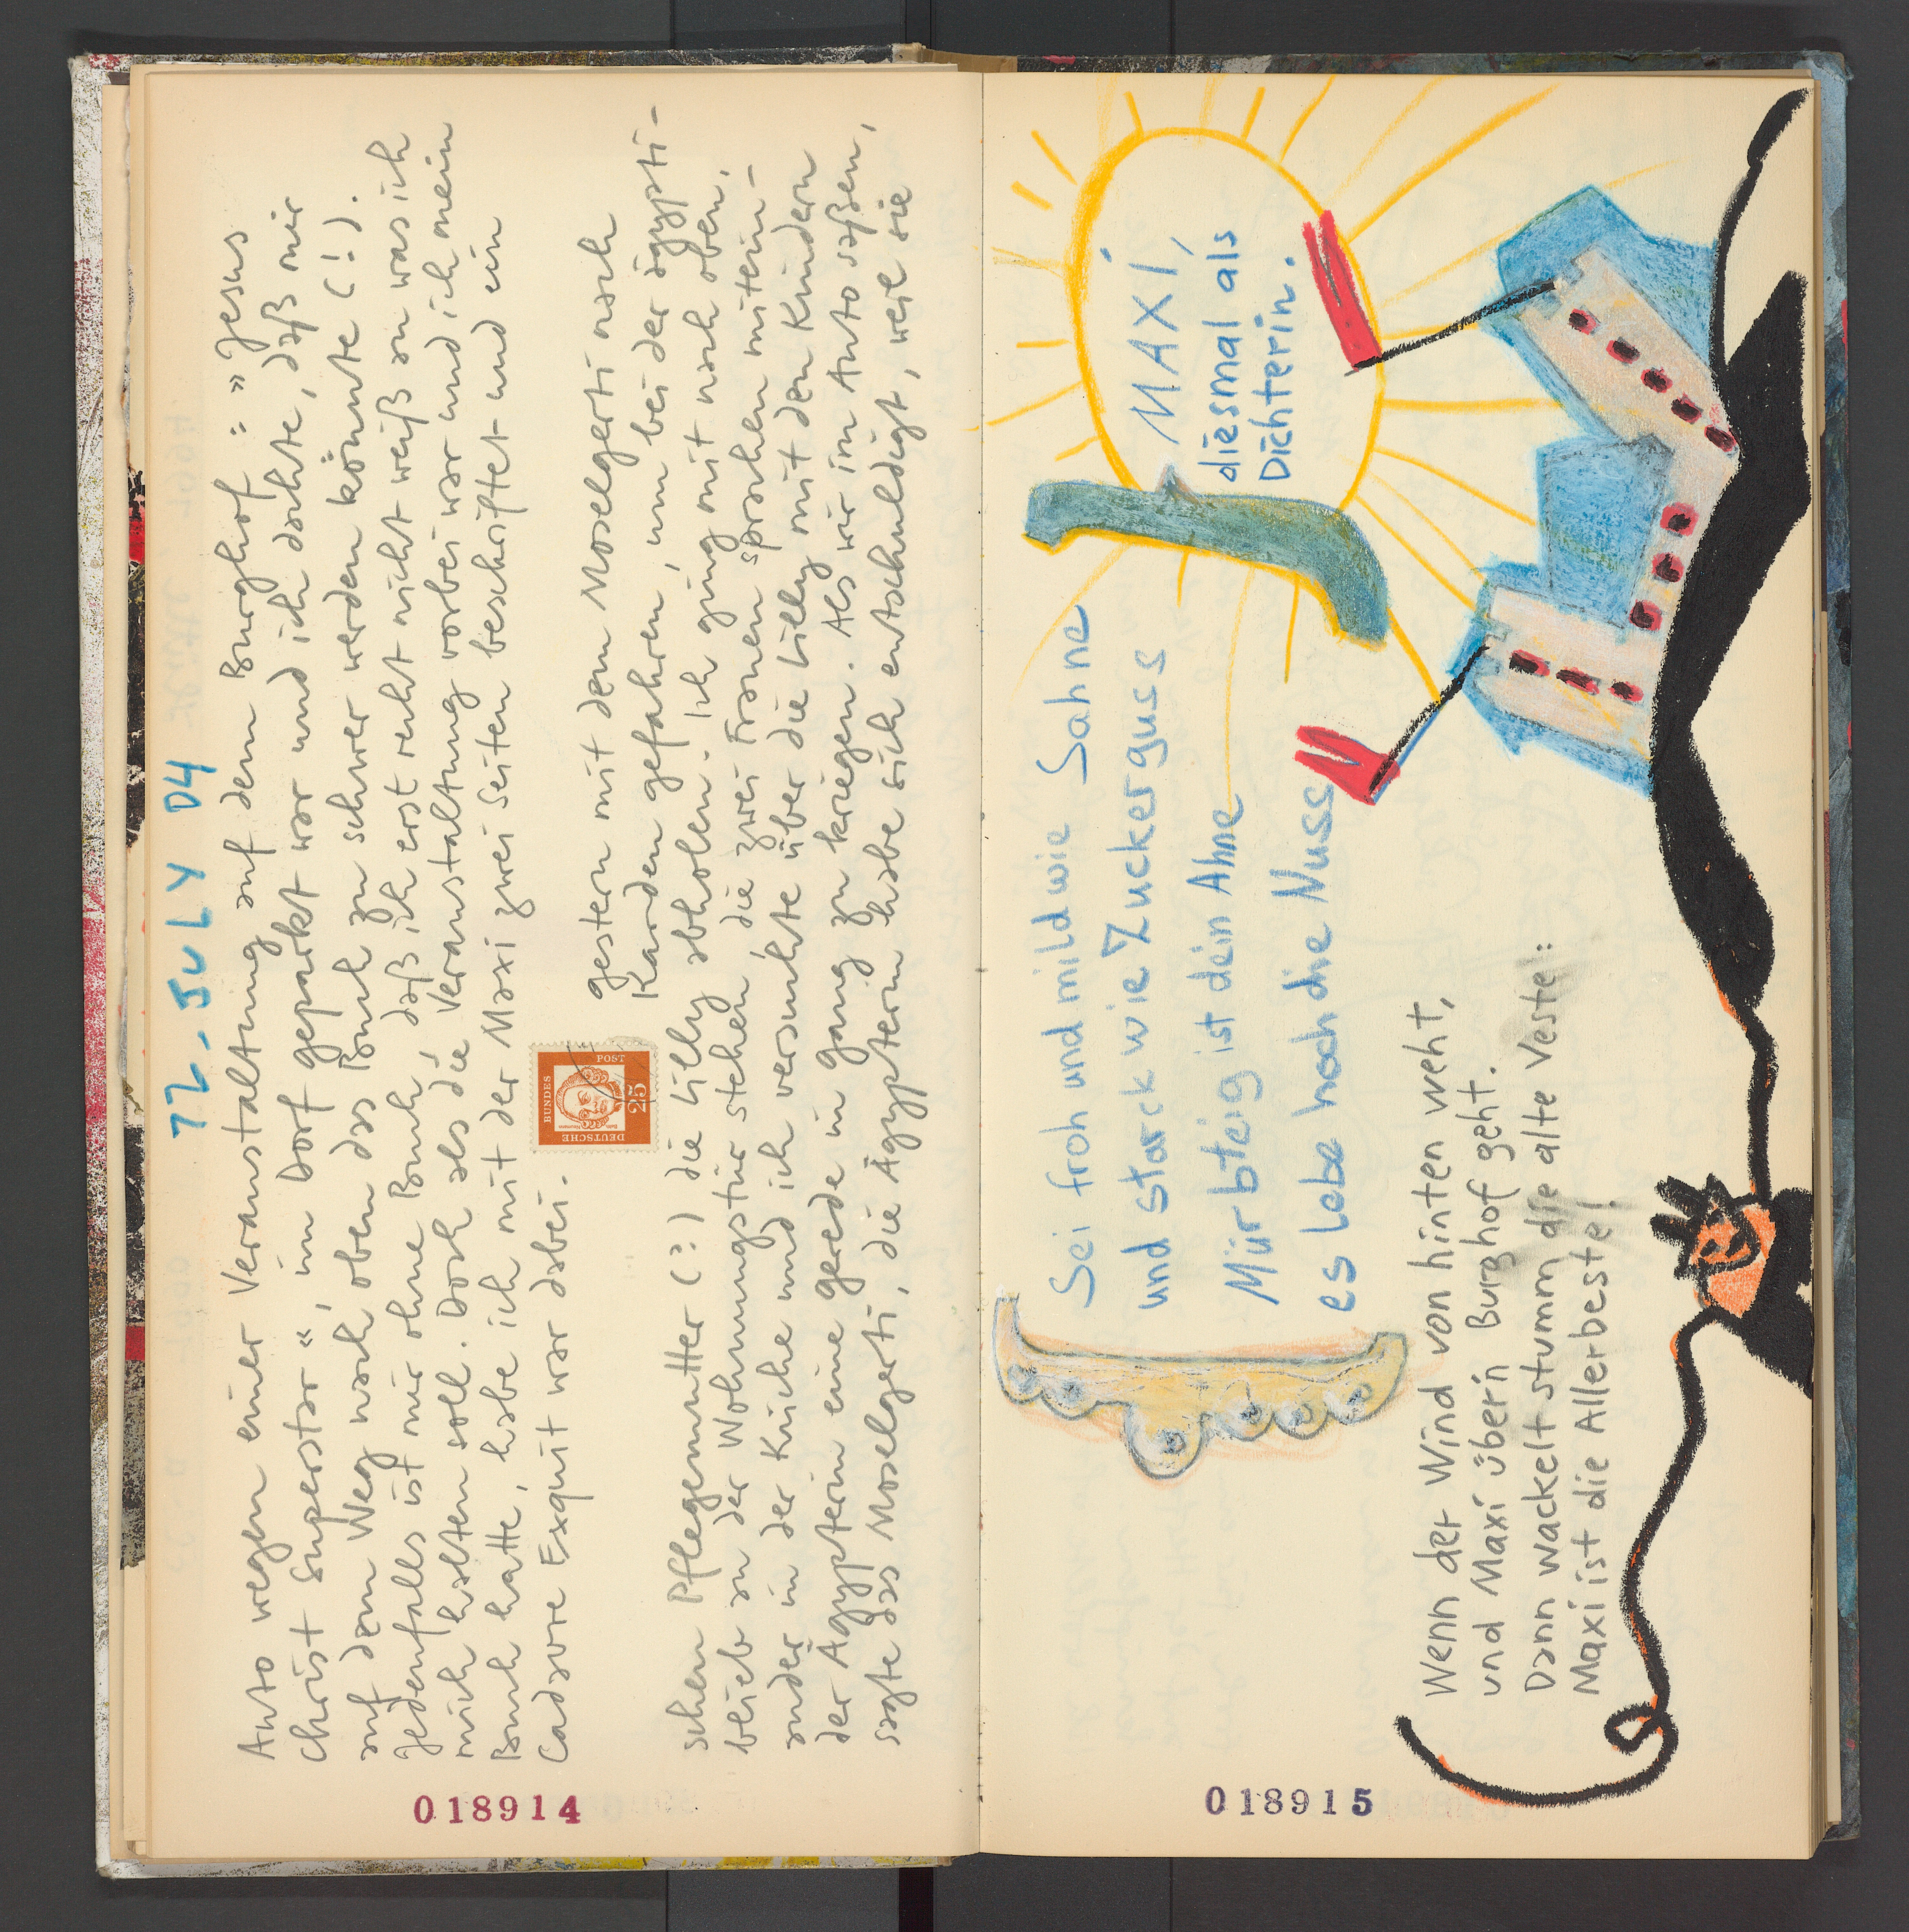 12. JULY 04
Auto wegen einer Veranstaltung auf dem Burghof: "Jesus
Christ Superstar", im Dorf geparkt war und ich dachte, daß mir
auf dem Weg nach oben das Buch zu schwer werden könnte (!).
Jedenfalls ist mir ohne Buch, daß ich erst recht nicht weiß an was ich
mich halten soll. Doch als die Veranstaltung vorbei war und ich mein
Buch hatte, habe ich mit der Maxi zwei Seiten beschriftet und ein
Cadavre Exquit war dabei.
gestern mit dem Moselgerti nach
Karden gefahren, um bei der ägypti-
schen Pflegemutter (?) die Lilly abholen. Ich ging mit nach oben,
blieb an der Wohnungstür stehen, die zwei Frauen sprachen mitein-
ander in der Küche und ich versuchte über die Lilly mit den Kindern
der Ägypterin eine gerede in gang zu kriegen. Als wir im Auto saßen,
sagte das Moselgerti, die Ägypterin habe sich entschuldigt, weil sie
DEUTSCHE
BUNDES
POST
25
018914
Sei froh und mild wie Sahne
und starck wie Zuckerguss
Mürbteig ist dein Ahne
es lebe hoch die Nuss
MAXI,
diesmal als
Dichterin.
Wenn der Wind von hinten weht,
und Maxi übern Burghof geht.
Dann wackelt stumm die alte Veste:
Maxi ist die Allerbeste!
018915